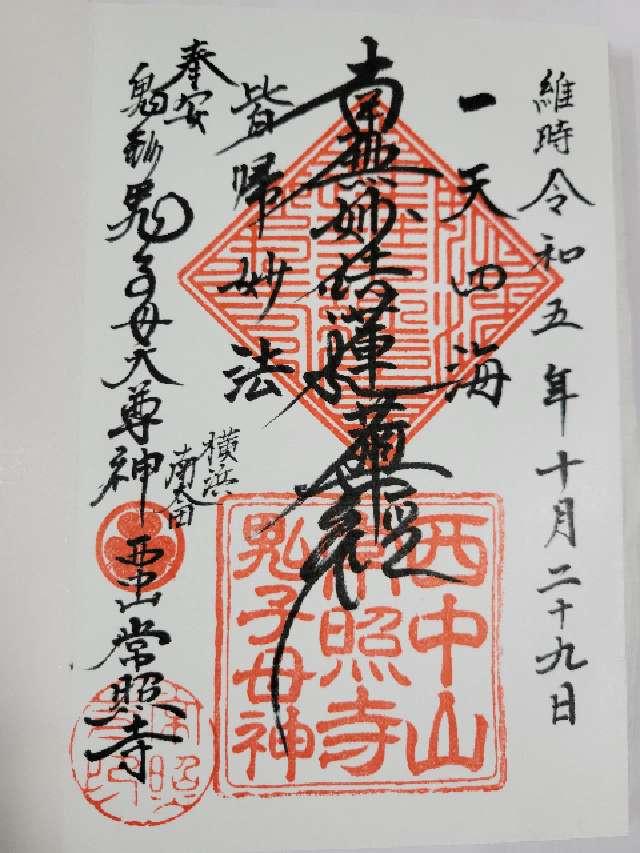 維時令和五年十月二十九日
一天四海
南無妙法蓮華経
皆帰妙法
奉安
鬼子母大尊神
横浜
南太田
西中山
常照寺
西中山
常照寺
鬼子母神